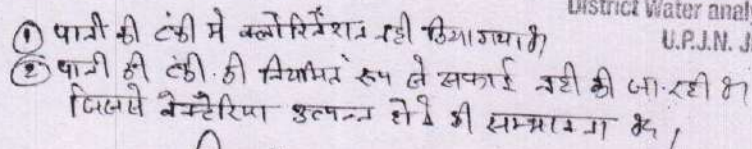 District Water analy
① पानी की टंकी मे क्लोरिनेशन नही किया गया है।
U.P.J.N. J
② पानी की टंकी की नियमित रूप से सफाई नही की जा रही है।
जिससे बैक्टेरिया उत्पन्न होने की सम्भावना है,